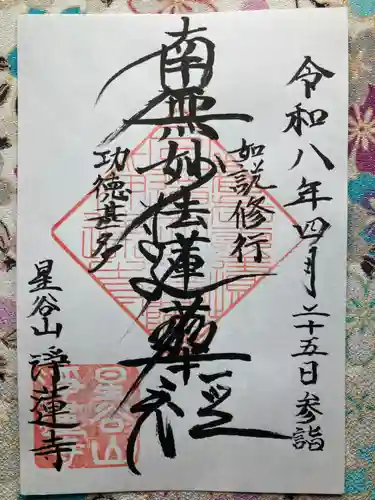 令和八年四月二十五日参詣
如説修行
南無妙法蓮華経
功徳甚多
星谷山
浄蓮寺
星谷山